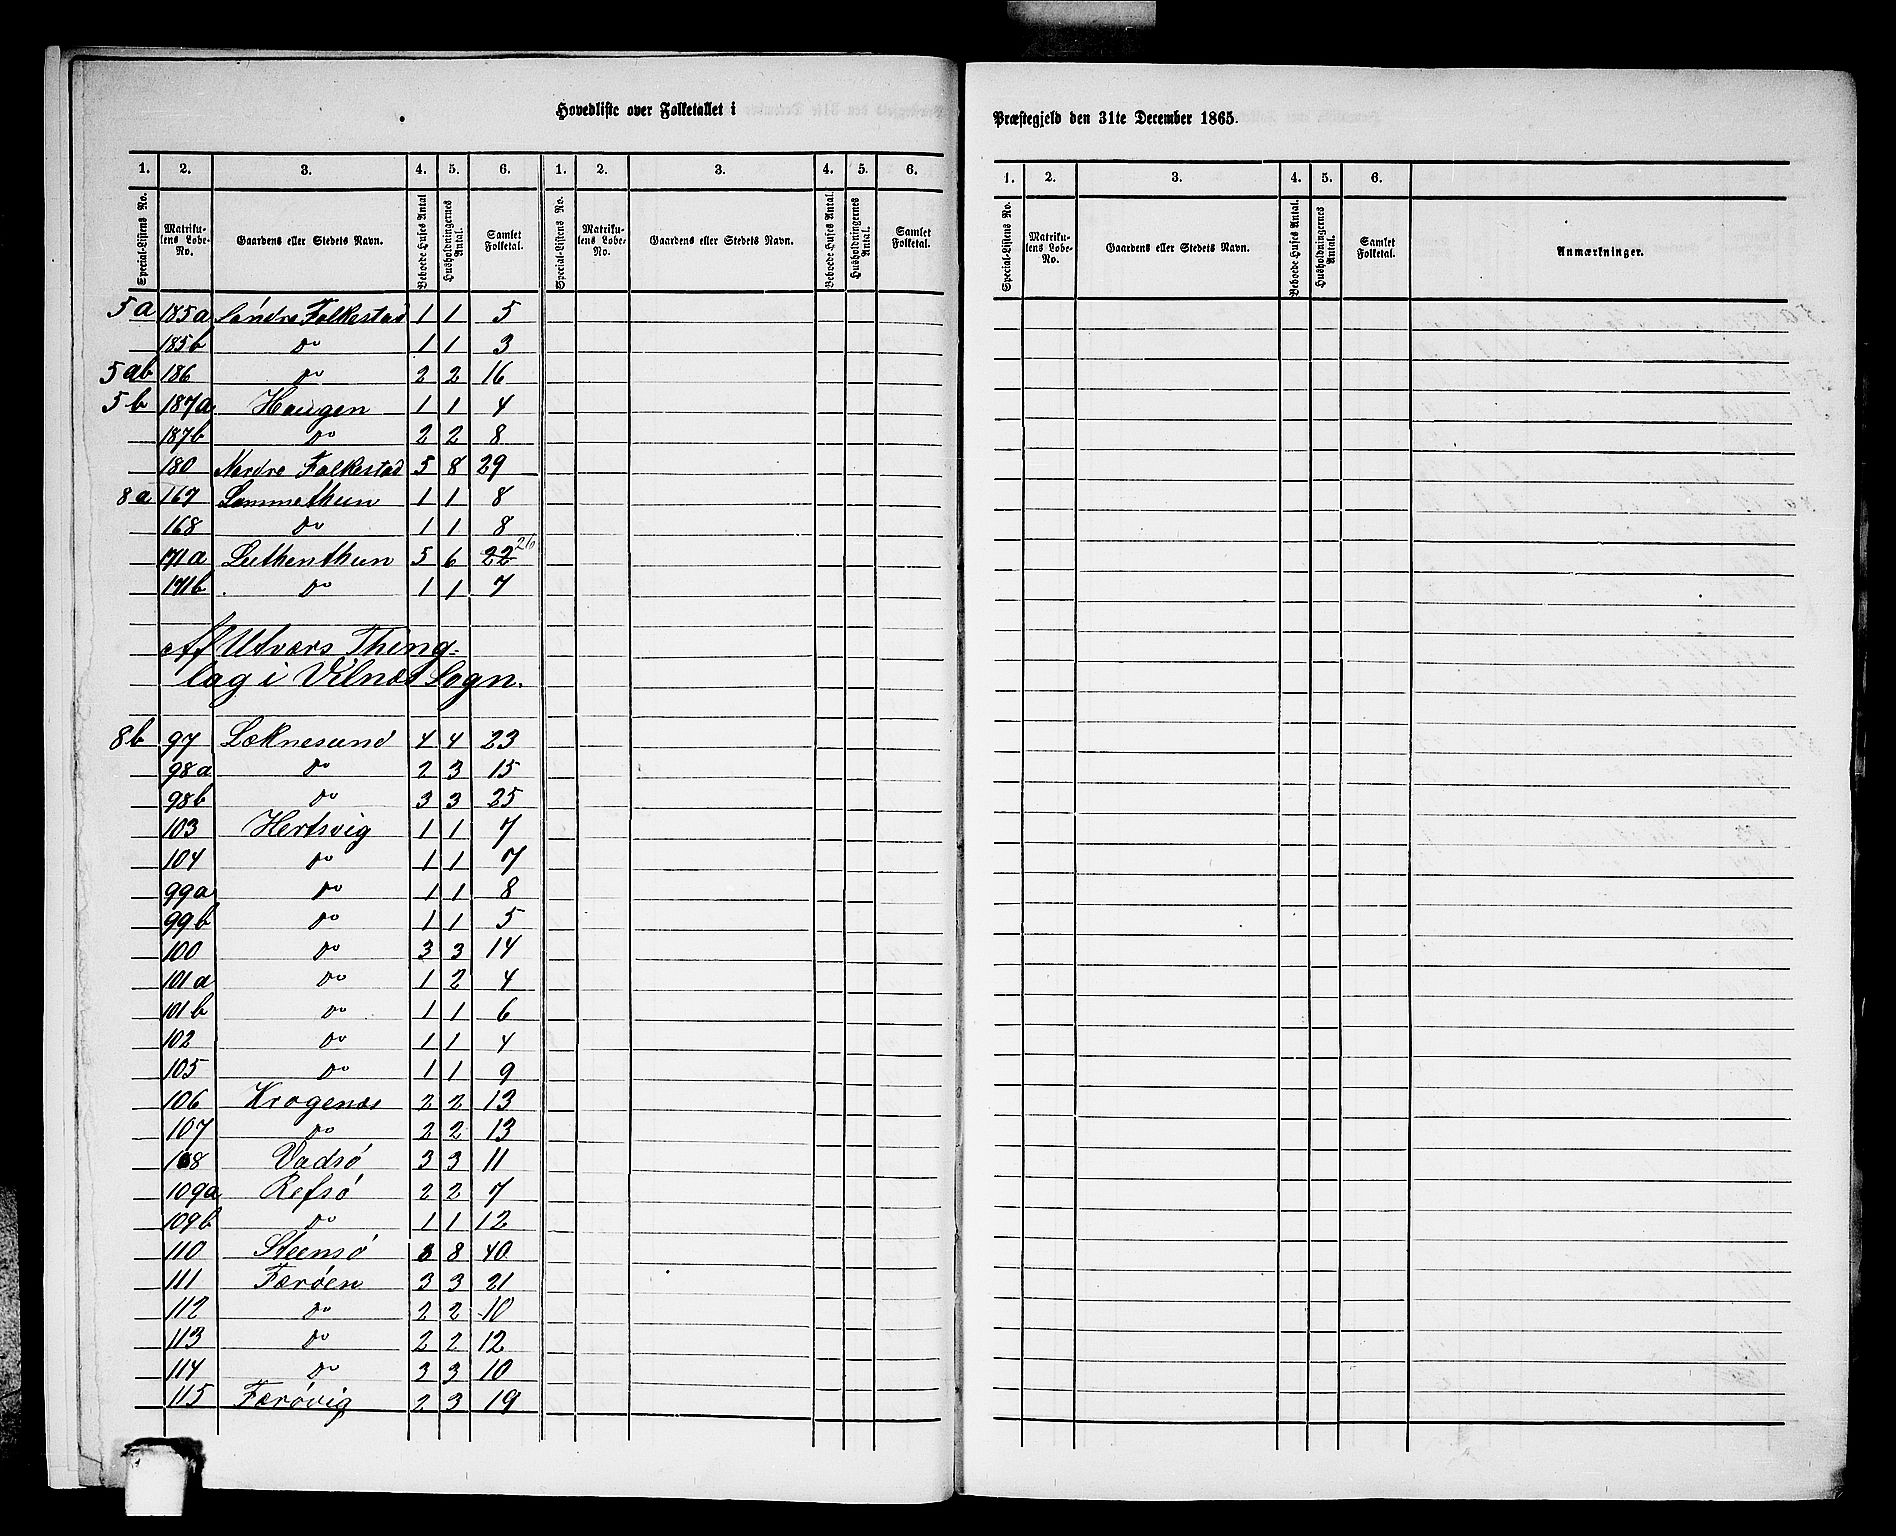 Hovedliste over Folketallet i
Præstegjeld den 31te December 1865.
1. 2. 3. 4. 5. 6. 1. 2. 3. 4. 5. 6.
Special-Listens No. Matrikulens Løbe-No. Gaardens eller Stedets Navn. Beboede Huses Antal Husholdningernes Antal. Samlet Folketal. Special-Listens No. Matrikulens Løbe-No. Gaardens eller Stedets Navn. Beboede Huses Antal. Husholdningernes Antal. Samlet Folketal.
1. 2. 3. 4. 5. 6.
Special-Listens No. Matrikulens Løbe-No. Gaardens eller Stedets Navn. Beboede Huses Antal. Husholdningernes Antal. Samlet Folketal. Anmærkninger.
5a 185a Söndre Folkestad 1 1 5
185b do 1 1 3
5ab 186 do 2 2 16
5b 187a Haugen 1 1 4
187b do 2 2 8
180 Nordre Folkestad 5 8 29
8a 167 Lammethun 1 1 8
168 do 1 1 8
171a Luthenthun 5 6 22 26
171b do 1 1 7
Af Utværs Thing-
lag i Vilnæs Sogn.
8b 97 Læknesund 4 4 23
98a do 2 3 15
98b do 3 3 25
103 Hertsvig 1 1 7
104 do 1 1 7
99a do 1 1 8
99b do 1 1 5
100 do 3 3 14
101a do 1 2 4
101b do 1 1 6
102 do 1 1 4
105 do 1 1 9
106 Krogenæs 2 2 13
107 do 2 2 13
108 Vadsö 3 3 11
109a Refsö 2 2 7
109b do 1 1 12
110 Steensö 8 8 40
111 Færöen 3 3 21
112 do 2 2 10
113 do 2 2 12
114 do 3 3 10
115 Færövig 2 3 19